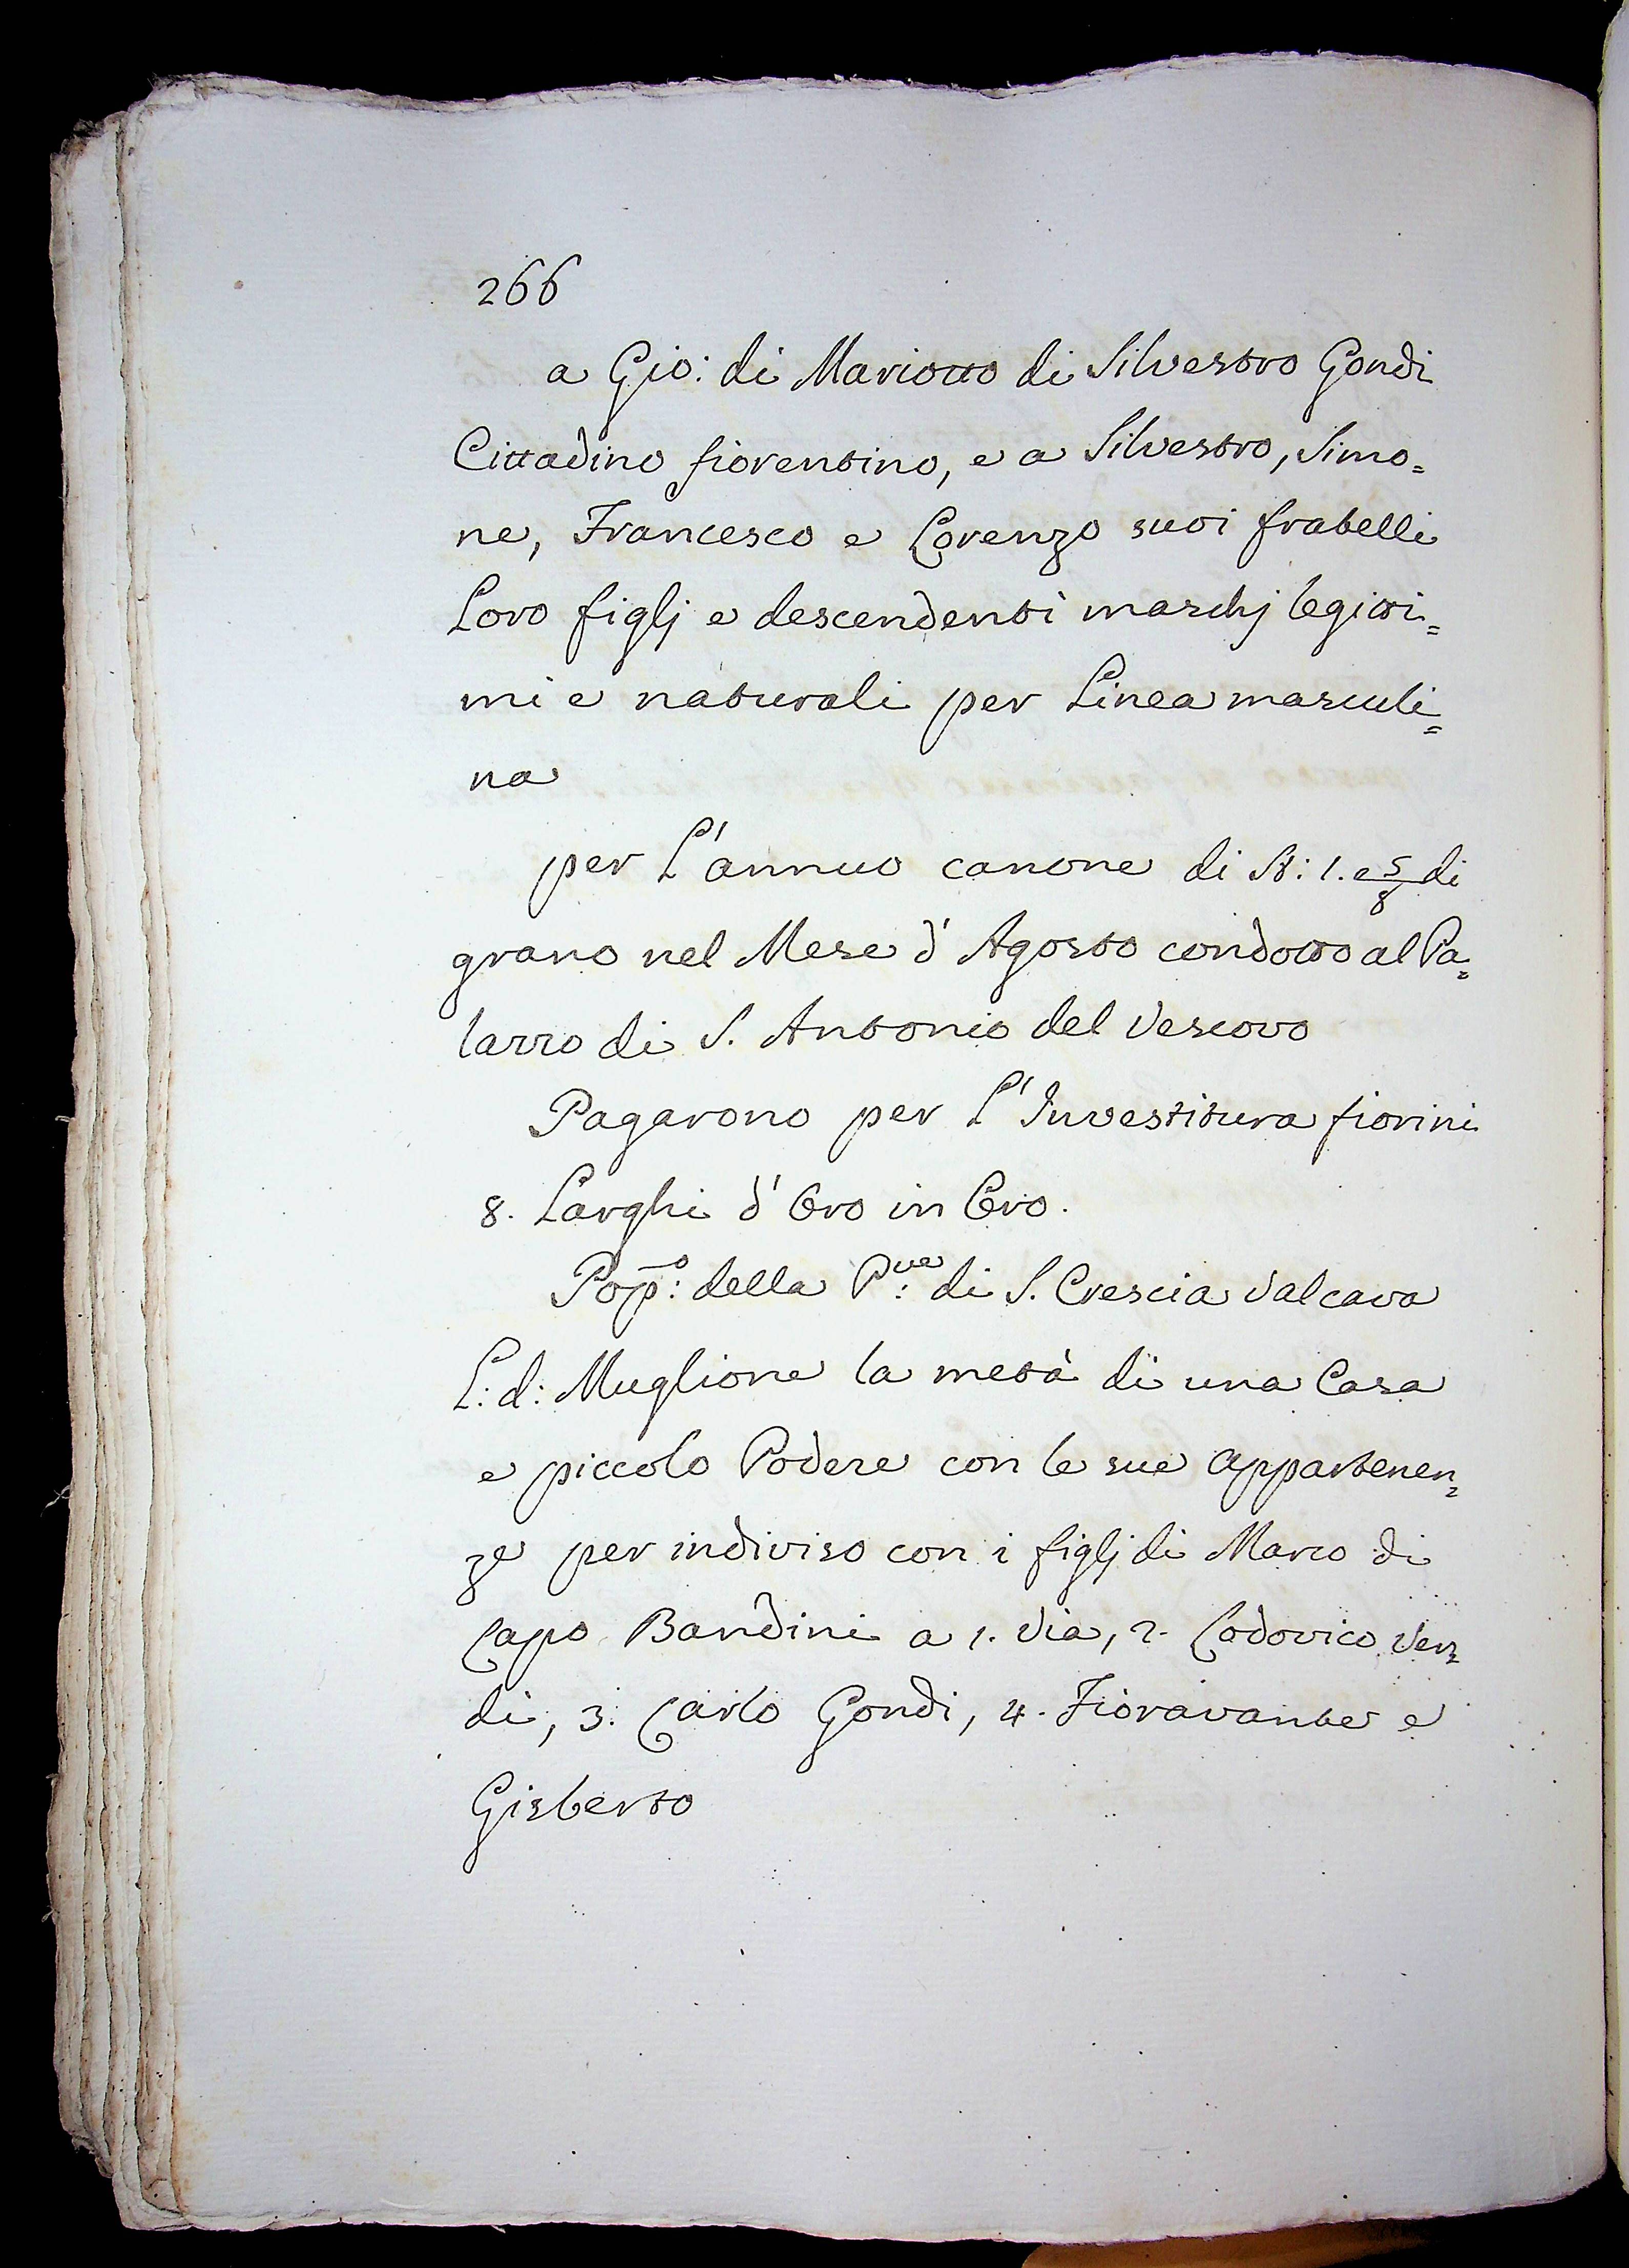 266
a Gio: di Mariotto di Silvestro Gondi
Cittadino fiorentino, e a Silvestro, Simo=
ne, Francesco e Lorenzo suoi fratelli
Loro figlj e descendenti maschj legitti=
mi e naturali per Linea masculi=
na
per L'annuo canone di St: 1. e 5/8 di
grano nel Mese d'Agosto condotto al Pa=
lazzo di S. Antonio del Vescovo
Pagarono per L'Investitura fiorini
8. Larghi d'Oro in Oro.
Pop̄o: della Pve: di S. Crescia Valcava
L: d: Muglione la metà di una Casa
e piccolo Podere con le sue appartenen=
ze per indiviso con i figlj di Marco di
Capo Bandini a 1. Via, 2. Lodovico Ven=
di, 3. Carlo Gondi, 4. Fioravante e
Gisberto